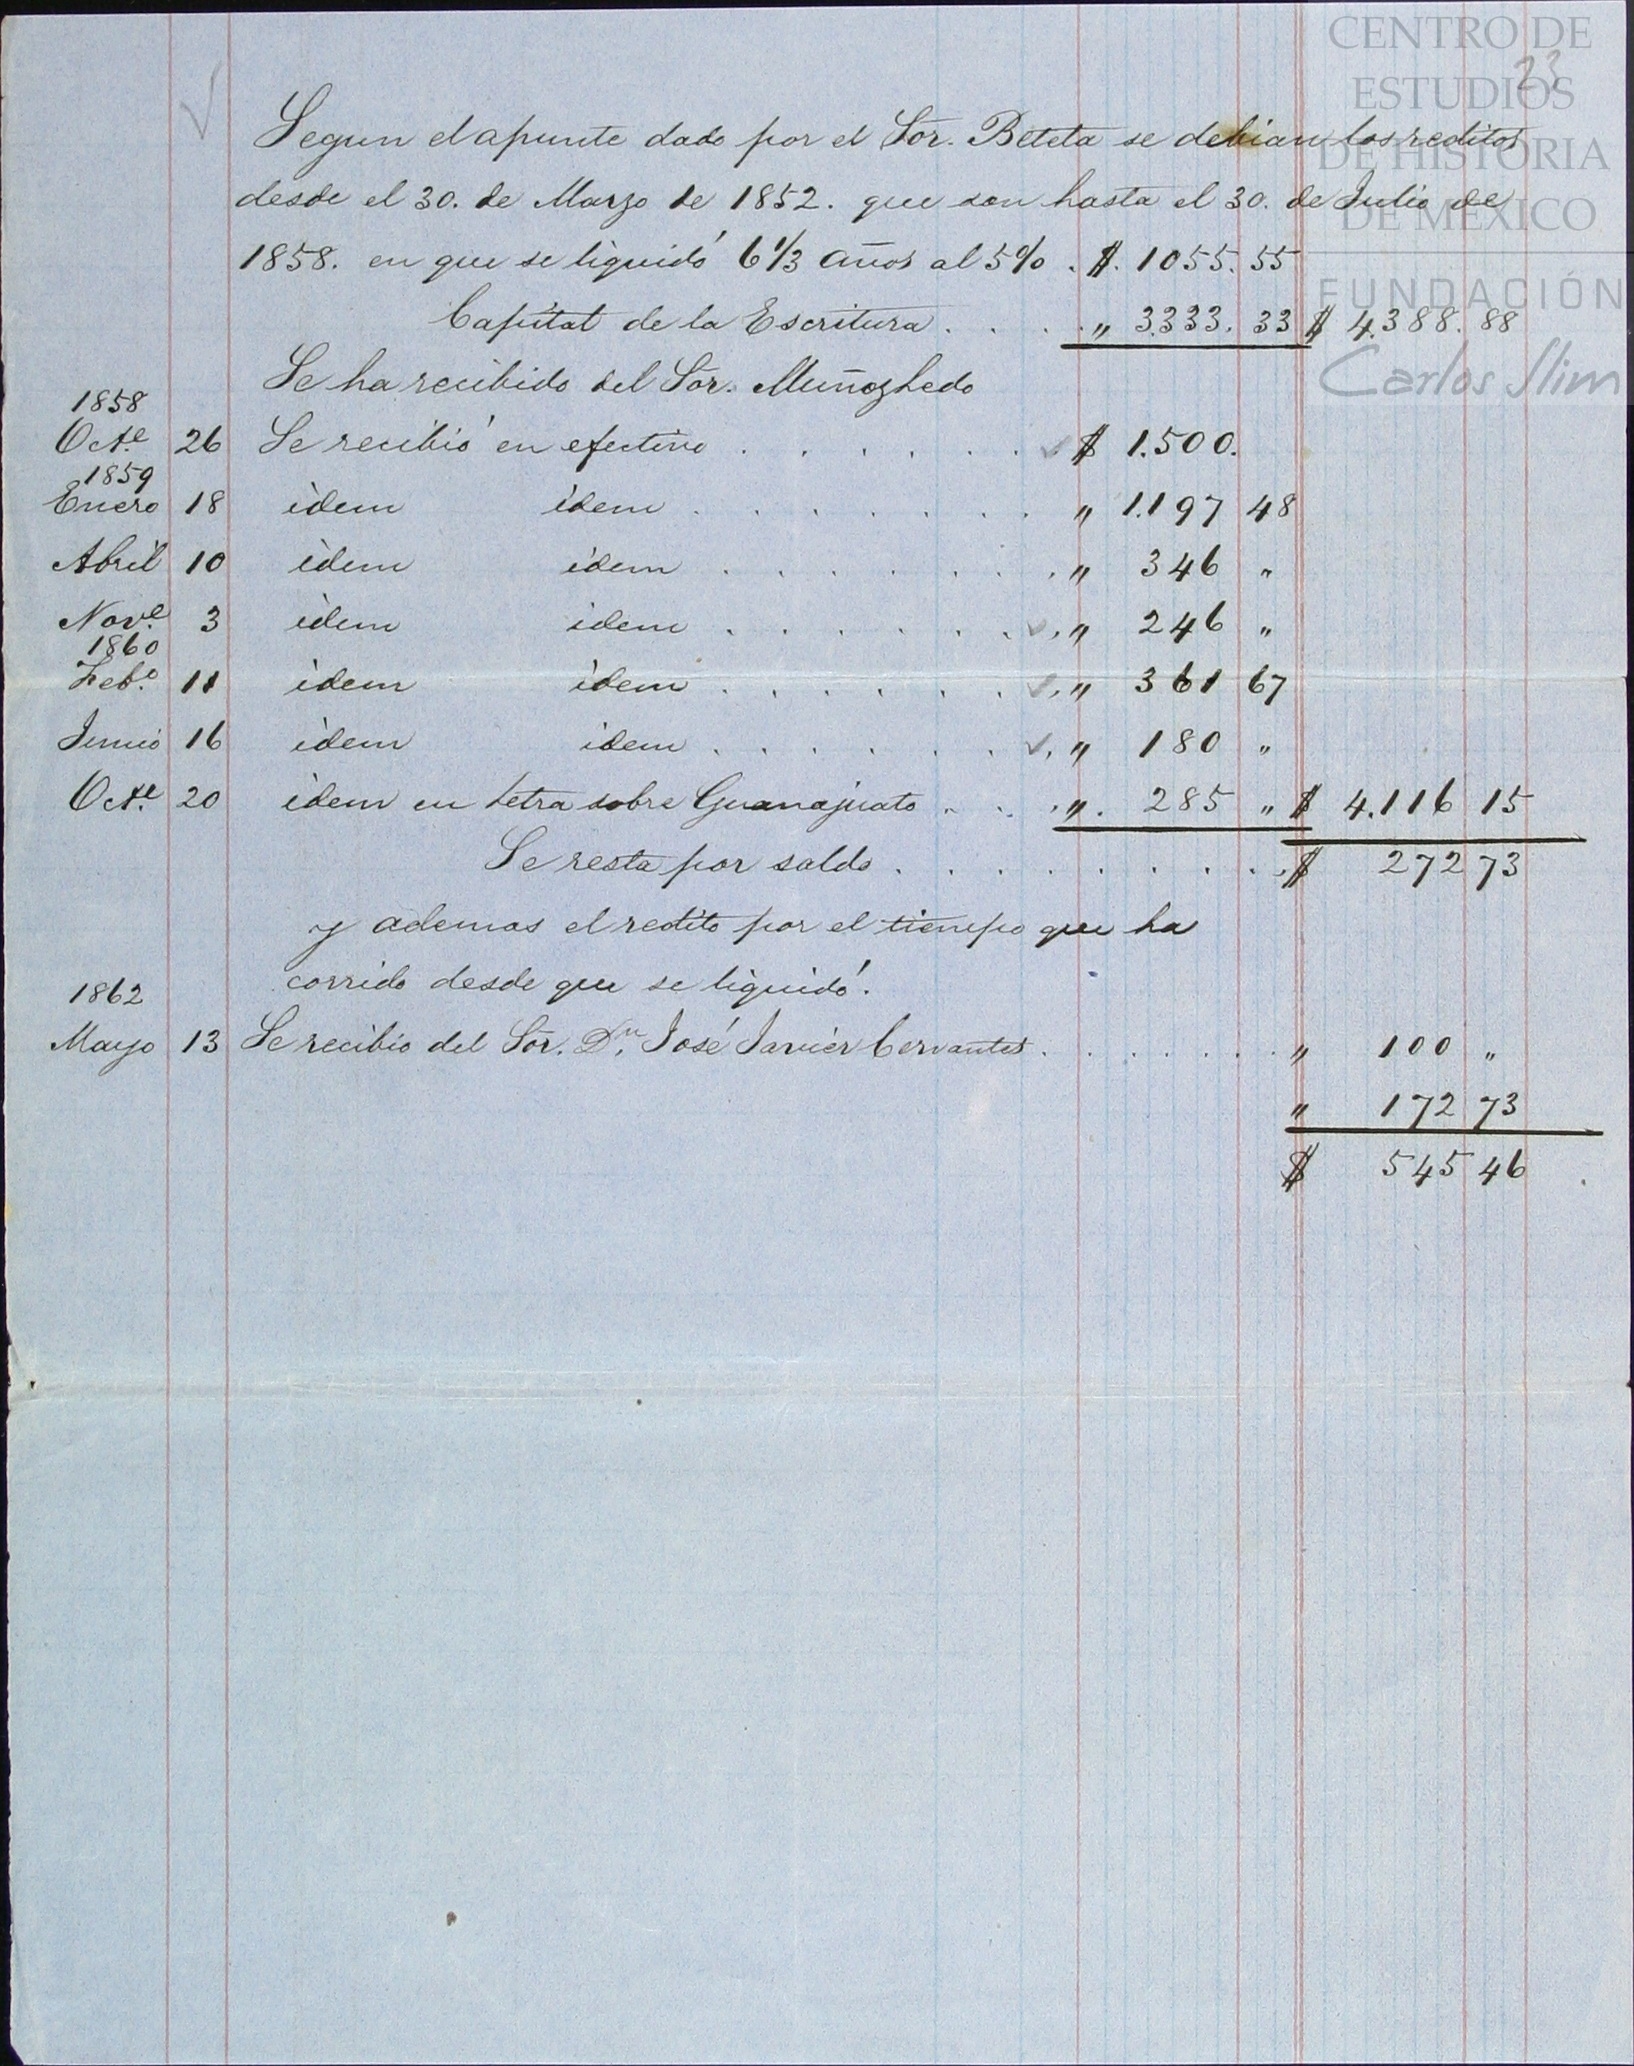 CENTRO DE
ESTUDIOS
DE HISTORIA
DE MEXICO
FUNDACIÓN
Carlos Slim
23
Segun el apunte dado por el Sõr. Beteta se debian los reditos
desde el 30. de Marzo de 1852. que son hasta el 30. de Julio de
1858. en que se liquidó 6 1/3 años al 5% . $. 1055. 55
Capital de la Escritura . . . . „ 3.333. 33 $ 4.388. 88
Se ha recibido del Sõr. Muñozledo
1858
Octe. 26 Se recibió en efectivo . . . . . . $ 1.500.
1859
Enero 18 idem idem . . . . . . . „ 1.197 48
Abril 10 idem idem . . . . . . . „ 346 „
Nove. 3 idem idem . . . . . . . „ 246 „
1860
Febo. 11 idem idem . . . . . . . „ 361 67
Junio 16 idem idem . . . . . . . „ 180 „
Octe. 20 idem en letra sobre Guanajuato . . . „. 285 „ $ 4.116 15
Se resta por saldo . . . . . . . . $ 272 73
y ademas el redito por el tiempo que ha
corrido desde que se liquidó.
1862
Mayo 13 Se recibio del Sõr. Dn. José Javier Cervantes . . . . . . . „ 100 „
„ 172 73
$ 545 46